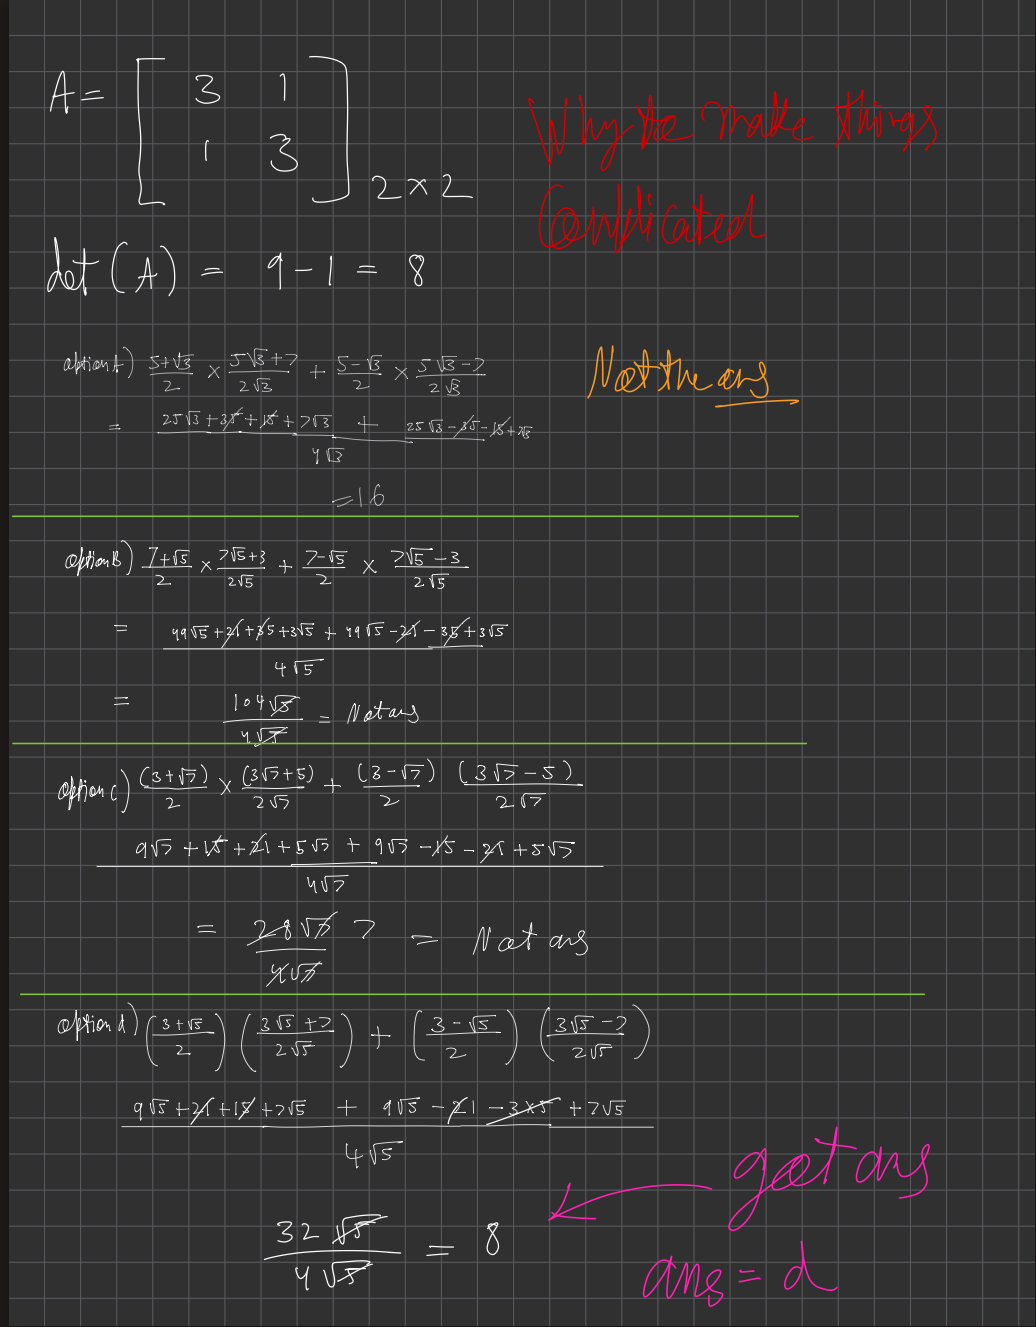 A = [ 3 1
1 3 ] 2×2
Why to make things
Complicated
det (A) = 9 - 1 = 8
option A) (5+√3)/2 × (5√3+7)/(2√3) + (5-√3)/2 × (5√3-7)/(2√3)
Not the ans
= (25√3 + 35 + 15 + 7√3 + 25√3 - 35 - 15 + 7√3)/(4√3)
= 16
option B) (7+√5)/2 × (7√5+3)/(2√5) + (7-√5)/2 × (7√5-3)/(2√5)
= (49√5 + 21 + 35 + 3√5 + 49√5 - 21 - 35 + 3√5)/(4√5)
= (104√5)/(4√5) = Not ans
option c) (3+√7)/2 × (3√7+5)/(2√7) + (3-√7)/2 (3√7-5)/(2√7)
(9√7 + 15 + 21 + 5√7 + 9√7 - 15 - 21 + 5√7)/(4√7)
= (28√7)/(4√7) 7 = Not ans
option d) ((3+√5)/2) ((3√5+7)/(2√5)) + ((3-√5)/2) ((3√5-7)/(2√5))
(9√5 + 21 + 15 + 7√5 + 9√5 - 21 - 3×5 + 7√5)/(4√5)
got ans
(32√5)/(4√5) = 8
ans = d